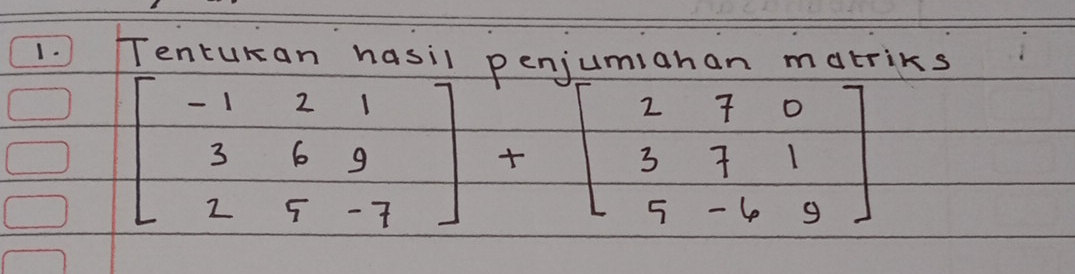 1. Tentukan hasil penjumlahan matriks
-1 2 1 2 7 0
3 6 9 + 3 7 1
2 5 -7 5 -6 9